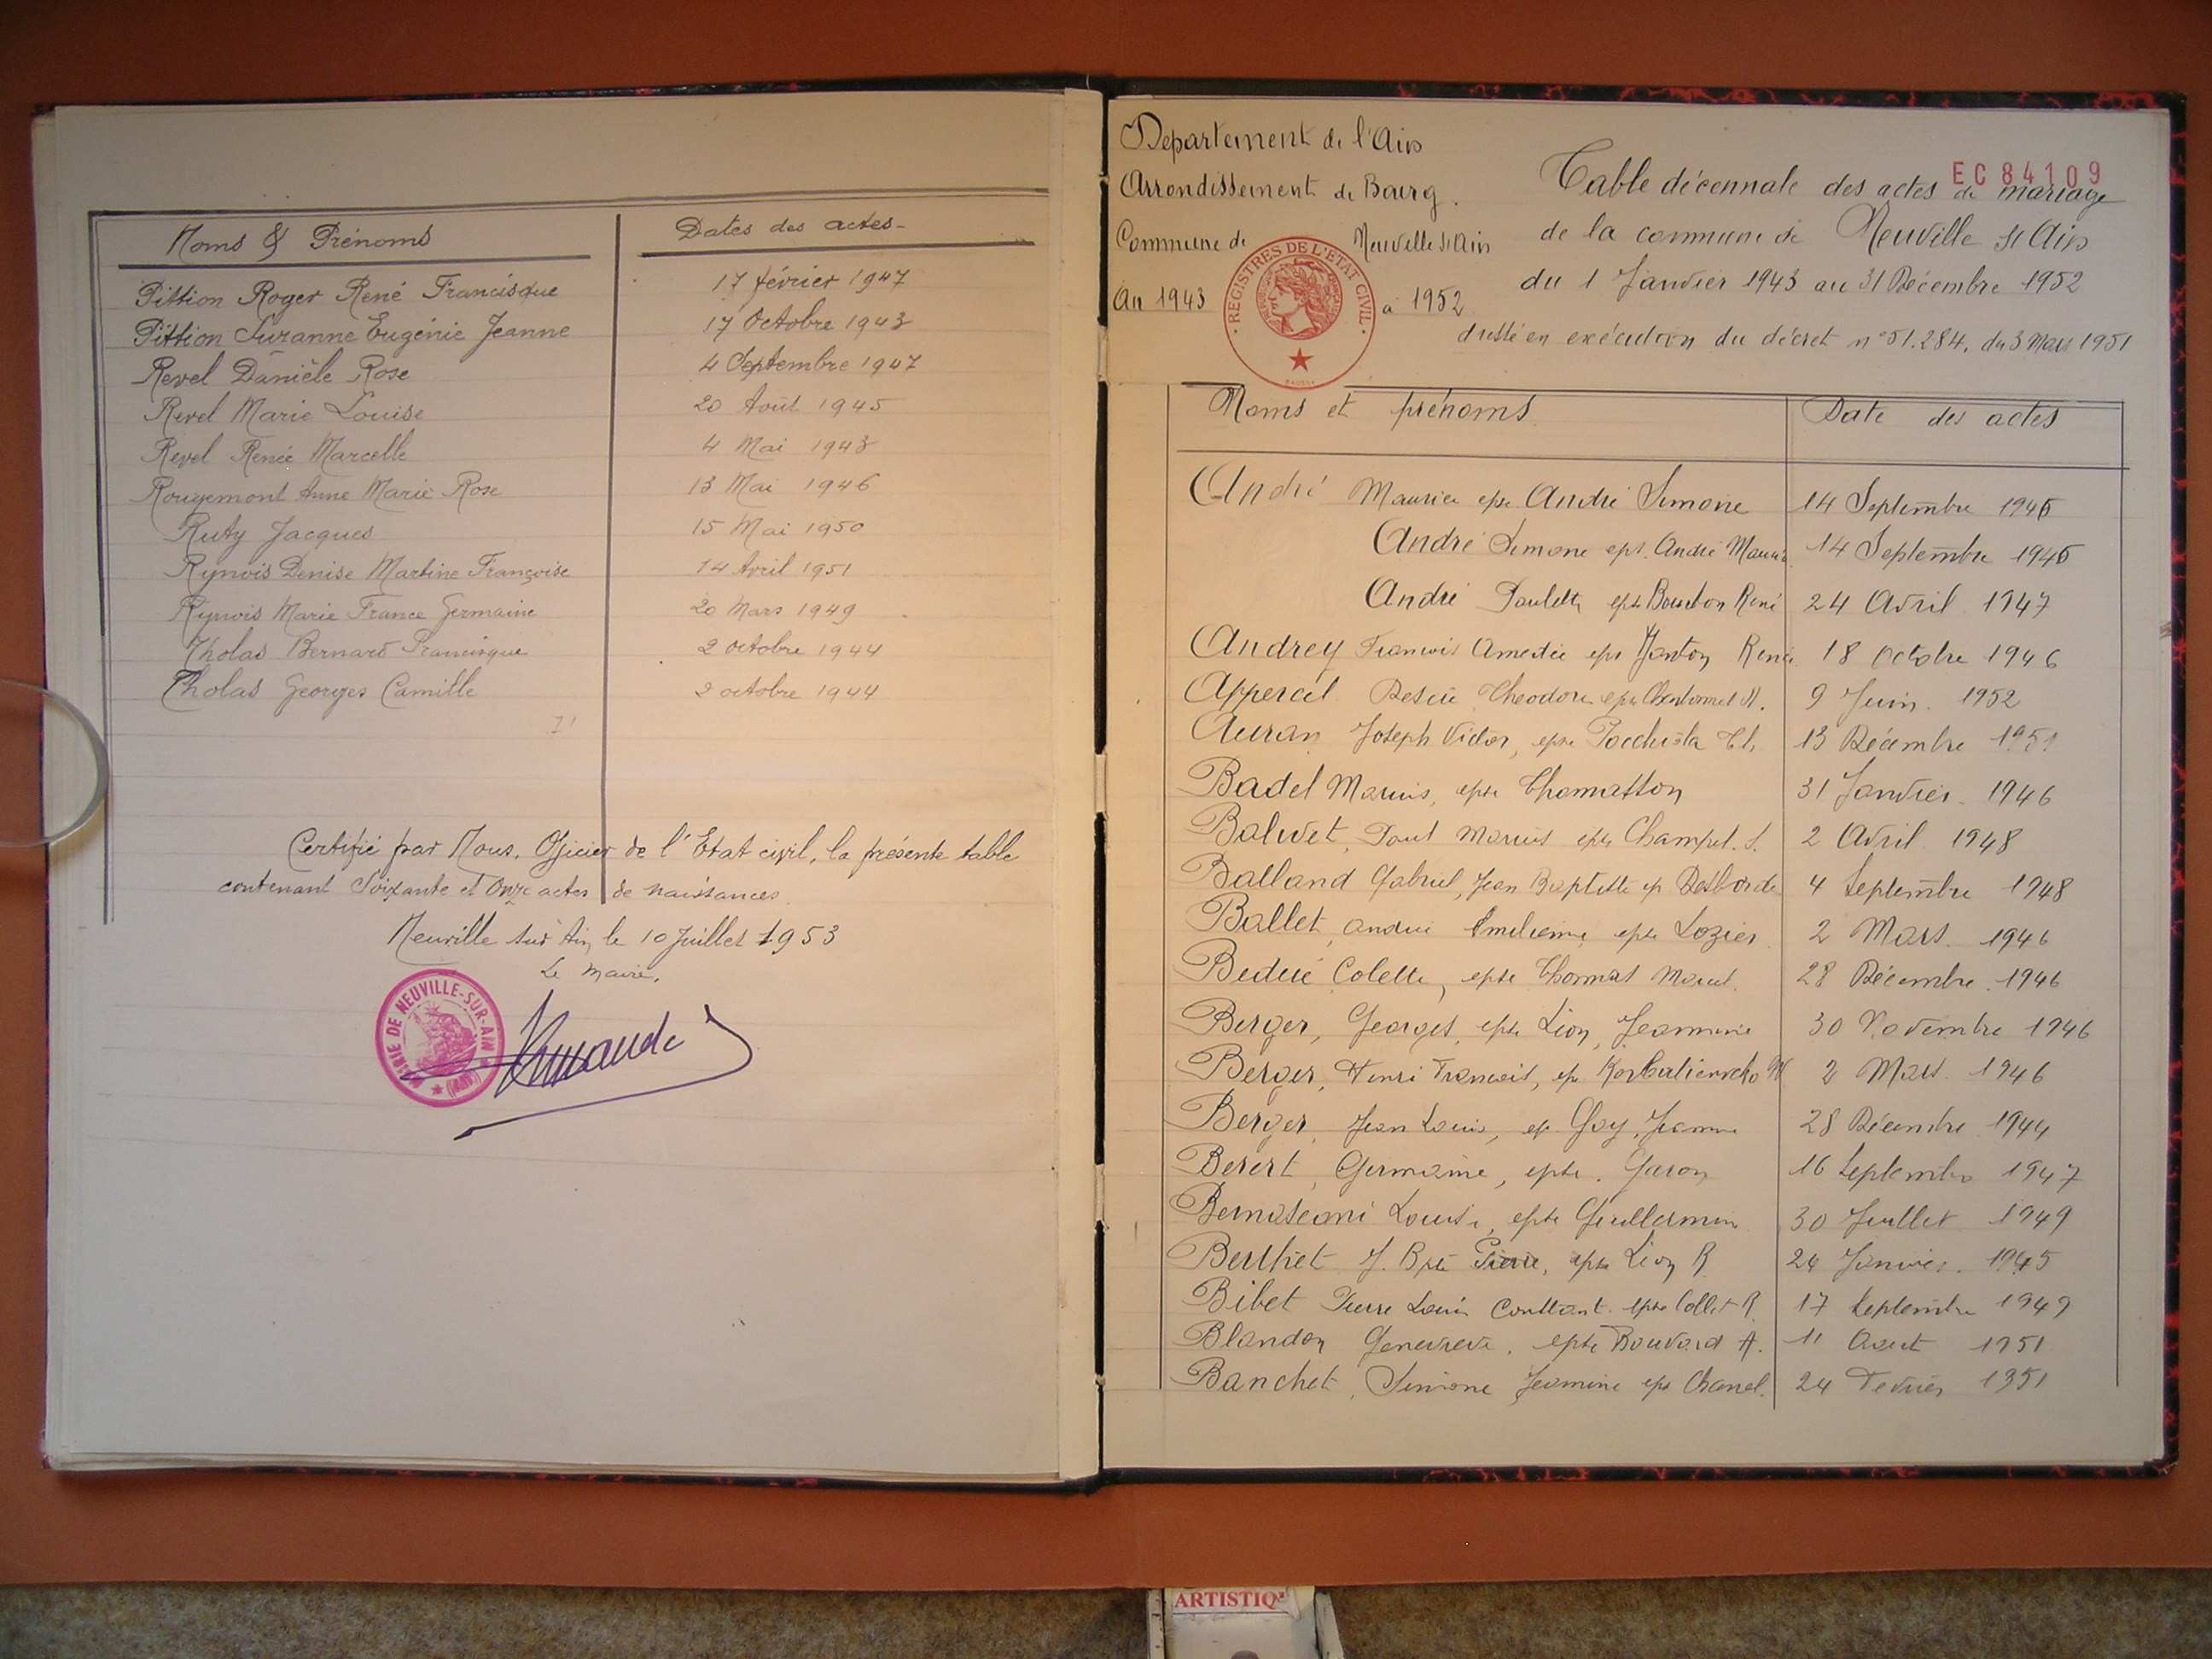 Noms & Prénoms
Dates des actes-
Pittion Roger René Francisque 17 février 1947
Pittion Suzanne Eugénie Jeanne 17 Octobre 1943
Revel Danièle Rose 4 Septembre 1947
Revel Marie Louise 20 Août 1945
Revel Renée Marcelle 4 Mai 1943
Rougemont Anne Marie Rose 13 Mai 1946
Ruty Jacques 15 Mai 1950
Rynois Denise Martine Françoise 14 Avril 1951
Rynois Marie France Germaine 20 Mars 1949
Tholas Bernard Francisque 2 Octobre 1944
Tholas Georges Camille 2 octobre 1944
71
Certifié par Nous, Officier de l'Etat civil, la présente table
contenant Soixante et Onze actes de naissances.
Neuville sur Ain, le 10 Juillet 1953
Le Maire,
MAIRIE DE NEUVILLE-SUR-AIN (AIN)
Departement de l'Ain
Arrondissement de Bourg.
Commune de Neuville s/ Ain
An 1943 à 1952
REGISTRES DE L'ETAT CIVIL
EC 84109
Table décennale des actes de mariage
de la commune de Neuville s/ Ain
du 1 Janvier 1943 au 31 Décembre 1952
dressé en exécution du décret n° 51.284, du 3 Mars 1951
Noms et prénoms Date des actes
André Maurice epse André Simone 14 Septembre 1946
André Simone eps. André Mauric 14 Septembre 1946
André Paulette epse Bourbon René 24 Avril 1947
Andrey Francois Amedée eps Janton Renée 18 Octobre 1946
Appercel Desiré Theodore epse Chardonnet 9 Juin. 1952
Auran Joseph Victor, epse 13 Décembre 1951
Badel Marius, epse Thomasson 31 Janvier. 1946
Balivet, Paul Marius epse Champel. S. 2 Avril 1948
Balland Gabriel, Jean Baptiste ep Desborde 4 Septembre 1948
Ballet, Emilienne epse Lozier 2 Mars. 1946
Colette, epse Thomas Marcel. 28 Décembre. 1946
Berger, Georges, epse Lion, Jeannine 30 Novembre 1946
Berger, Henri Francois, ep 2 Mars. 1946
Berger, Jean Louis, ep Goy, Jeanne 28 Décembre 1944
Germaine, epse. Garon 16 Septembre 1947
Louise, epse Guillermin 30 Juillet 1949
Berthet J. Bpte Pierre, epse Lion R 24 Janvier. 1945
Bibet Pierre Louis Constant. epse Collet R. 17 Septembre 1949
Blandon Genevieve. epse Bouvard A. 11 Aout 1951
Banchet, Simone Jeannine eps Chanel. 24 Fevrier 1951
ARTISTIQ